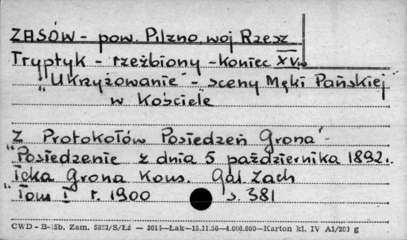 ZASÓW - pow. Pilzno, woj Rzesz
Tryptyk - rzeźbiony - koniec XV w.
"Ukrzyżowanie" - sceny Męki Pańskiej
w Kościele
Z Protokołów Posiedzeń Grona -
"Posiedzenie z dnia 5 października 1892.
Teka Grona Kons. Gal. Zach
"Tom I r. 1900 s. 381
CWD - B-15b. Zam. 5883/S/Łź — 3015—Łak—15.11.56—4.000.000—Karton kl. IV A1/200 g